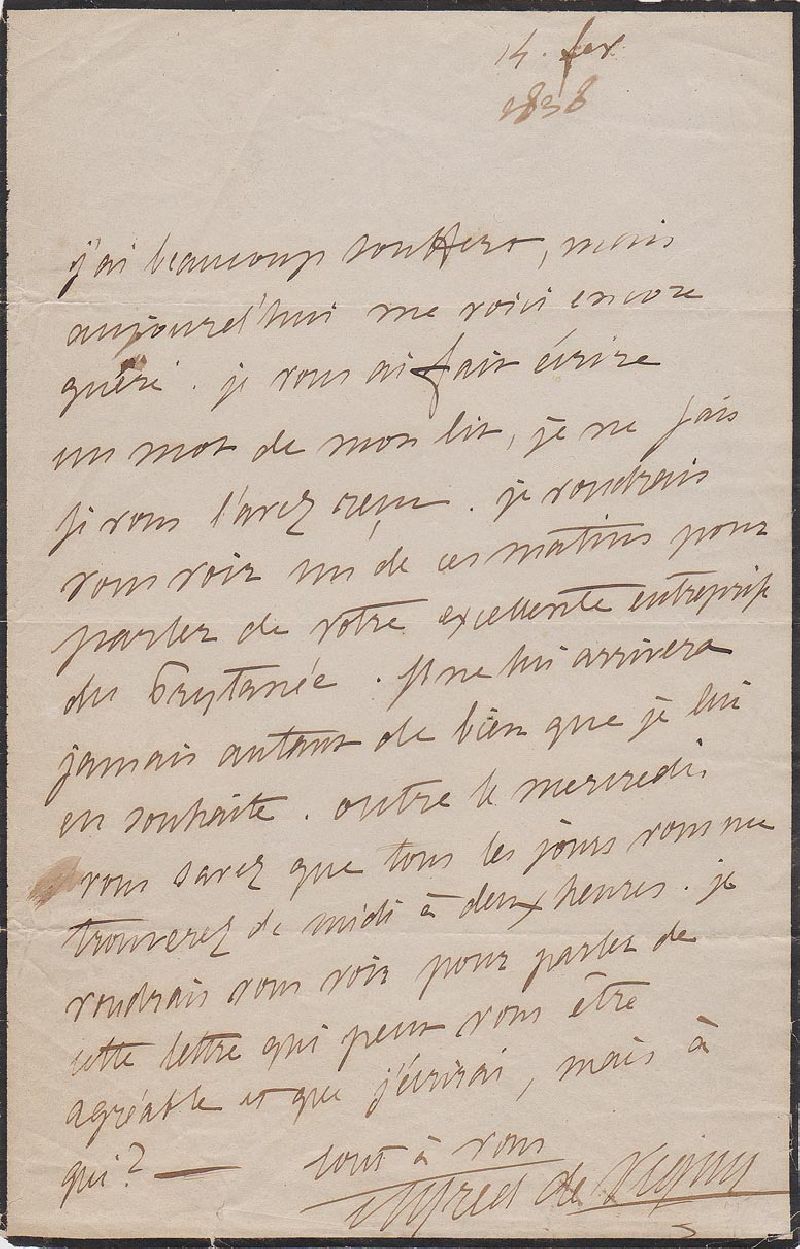 14. fev
1838
j'ai beaucoup souffert, mais
aujourd'hui me voici encore
guéri. je vous ai fait écrire
un mot de mon lit, je ne sais
si vous l'avez reçu. je voudrais
vous voir un de ces matins pour
parler de votre excellente entreprise
du Prytanée. Il ne lui arrivera
jamais autant de bien que je lui
en souhaite. outre le mercredi,
vous savez que tous les jours vous me
trouverez de midi à deux heures. je
voudrais vous voir pour parler de
cette lettre qui peut vous être
agréable et que j'écrirai, mais à
qui? — tout à vous
Alfred de Vigny